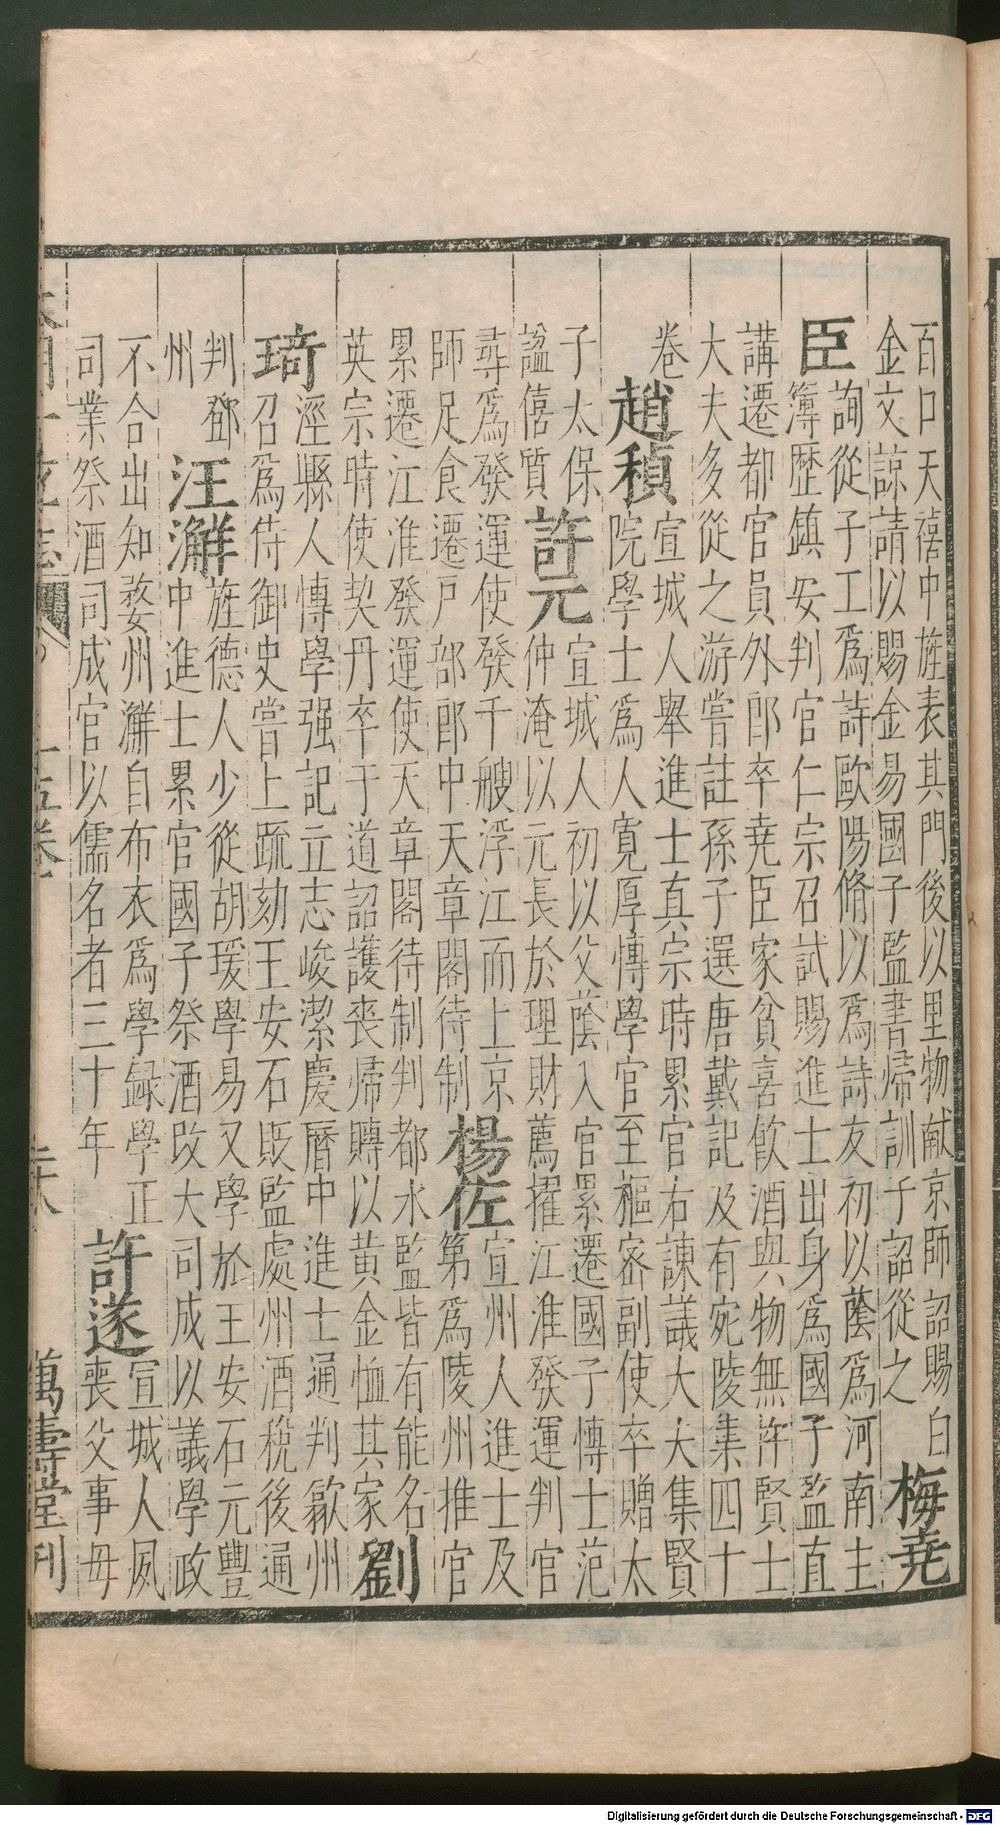 百口天禧中旌表其門後以里物献京師詔賜白
金文諒請以賜金易國子監書歸訓子詔從之
梅堯
臣
詢從子工爲詩歐陽脩以爲詩友初以蔭爲河南主
簿歷鎮安判官仁宗召試賜進士出身爲國子監直
講遷都官員外郎卒堯臣家貧喜飲酒與物無忤賢士
大夫多從之游嘗註孫子選唐載記及有宛陵集四十
卷
趙稹
宣城人舉進士真宗時累官右諫議大夫集賢
院學士爲人寬厚博學官至樞密副使卒贈太
子太保
許元
宣城人初以父蔭入官累遷國子博士范
仲淹以元長於理財薦擢江淮發運判官
謚僖質
尋爲發運使發千艘浮江而上京
師足食遷戶部郎中天章閣待制
楊佐
宣州人進士及
第爲陵州推官
累遷江淮發運使天章閣待制判都水監皆有能名
英宗時使契丹卒于道詔護喪歸賻以黃金恤其家
劉
琦
涇縣人博學强記立志峻潔慶曆中進士通判歙州
召爲侍御史嘗上疏劾王安石貶監處州酒稅後通
判鄧
州
汪澥
旌德人少從胡瑗學易又學於王安石元豐
中進士累官國子祭酒改大司成以議學政
不合出知婺州澥自布衣爲學録學正
司業祭酒司成官以儒名者三十年
許遂
宣城人夙
喪父事母
十五卷
二十八
萬壽堂刊
Digitalisierung gefördert durch die Deutsche Forschungsgemeinschaft - DFG